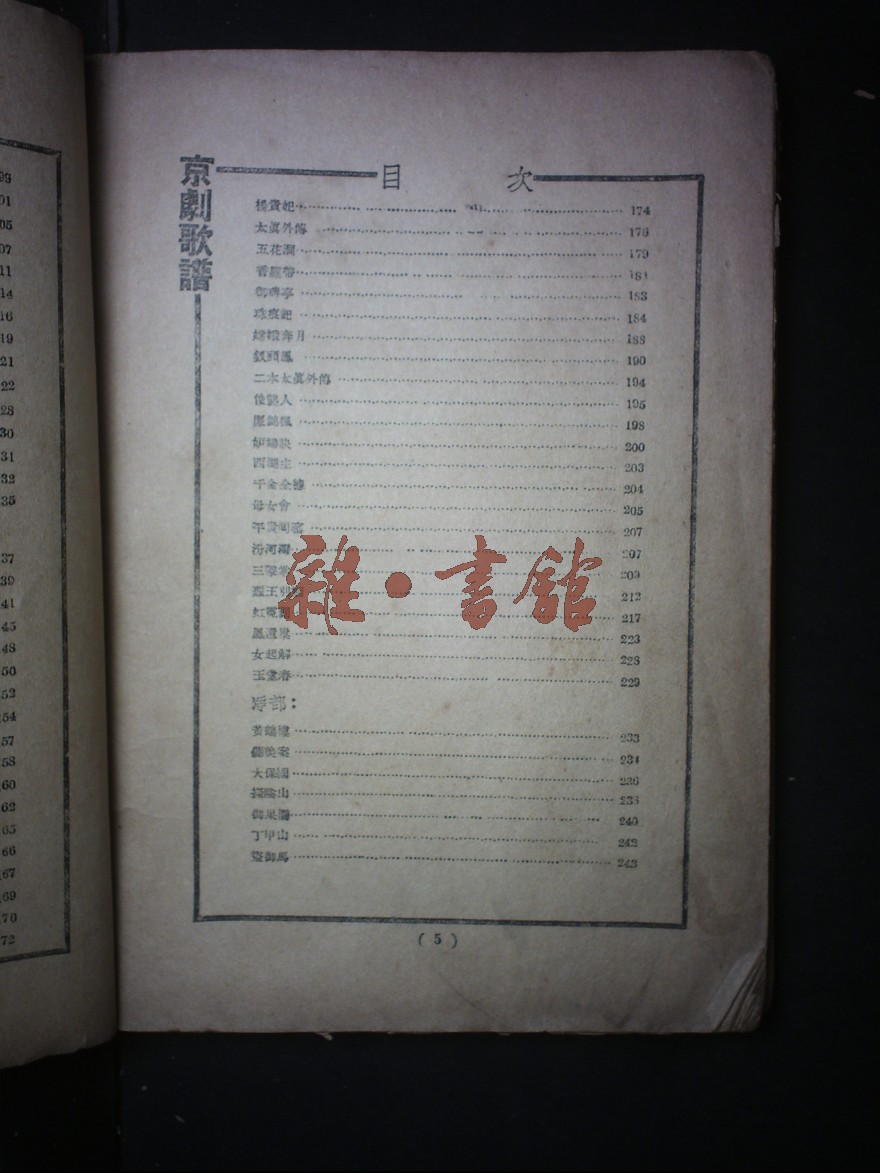 99
01
05
07
11
14
16
19
21
22
28
30
31
32
35
37
39
41
45
48
50
52
54
57
58
60
62
65
66
67
69
70
72
京劇歌譜
目 次
楊貴妃 174
太眞外傳 176
五花洞 179
香羅帶 181
御碑亭 183
珠痕記 184
嫦娥奔月 188
釵頭鳳 190
二本太眞外傳 194
俊襲人 195
廉錦楓 198
妒婦訣 200
203
千金全德 204
母女會 205
平貴回窰 207
汾河灣 207
三擊掌 209
霸王別姬 212
虹霓關 217
鳳還巢 223
女起解 228
玉堂春 229
淨部：
黃鶴樓 233
鍘美案 234
大保國 236
探陰山 238
御果園 240
丁甲山 242
盜御馬 243
( 5 )
雜·書館